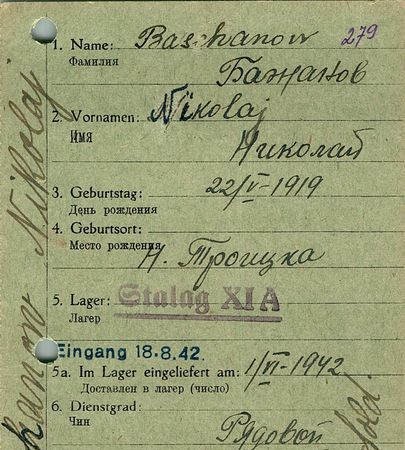 279
1. Name: Baschanow
Фамилия
Бажанов
2. Vornamen: Nikolaj
Имя
Николай
3. Geburtstag: 22/V-1919
День рождения
4. Geburtsort:
Место рождения
Н. Троицка
5. Lager: Stalag XI A
Лагер
Eingang 18.8.42.
5a. Im Lager eingeliefert am: 1/VI-1942
Доставлен в лагер (число)
6. Dienstgrad:
Чин
Рядовой
Nikolaj